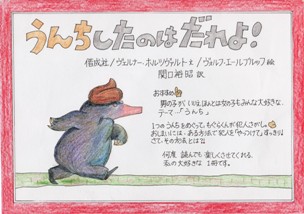 うんちしたのはだれよ!
偕成社/ヴェルナー・ホルツヴァルト文/ヴォルフ・エールブルッフ絵
関口裕昭 訳
おすすめ
男の子が(いいえほんとは女の子も)みんな大好きな…
テーマ…「うんち」
1つのうんちをめぐって、もぐらくんが犯人さがし。
おしまいには、ある方法で犯人を「やっつけて」すっきり
さて、その方法とは?
何度 読んでも 楽しくさせてくれる、
私の大好きな 1冊です。